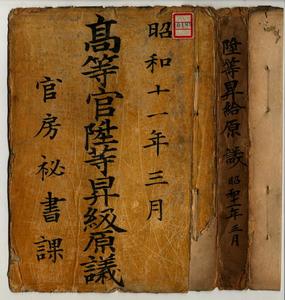 昭和十一年三月
高等官陞等昇級原議
官房秘書課
陞等昇給原議 昭和十一年三月